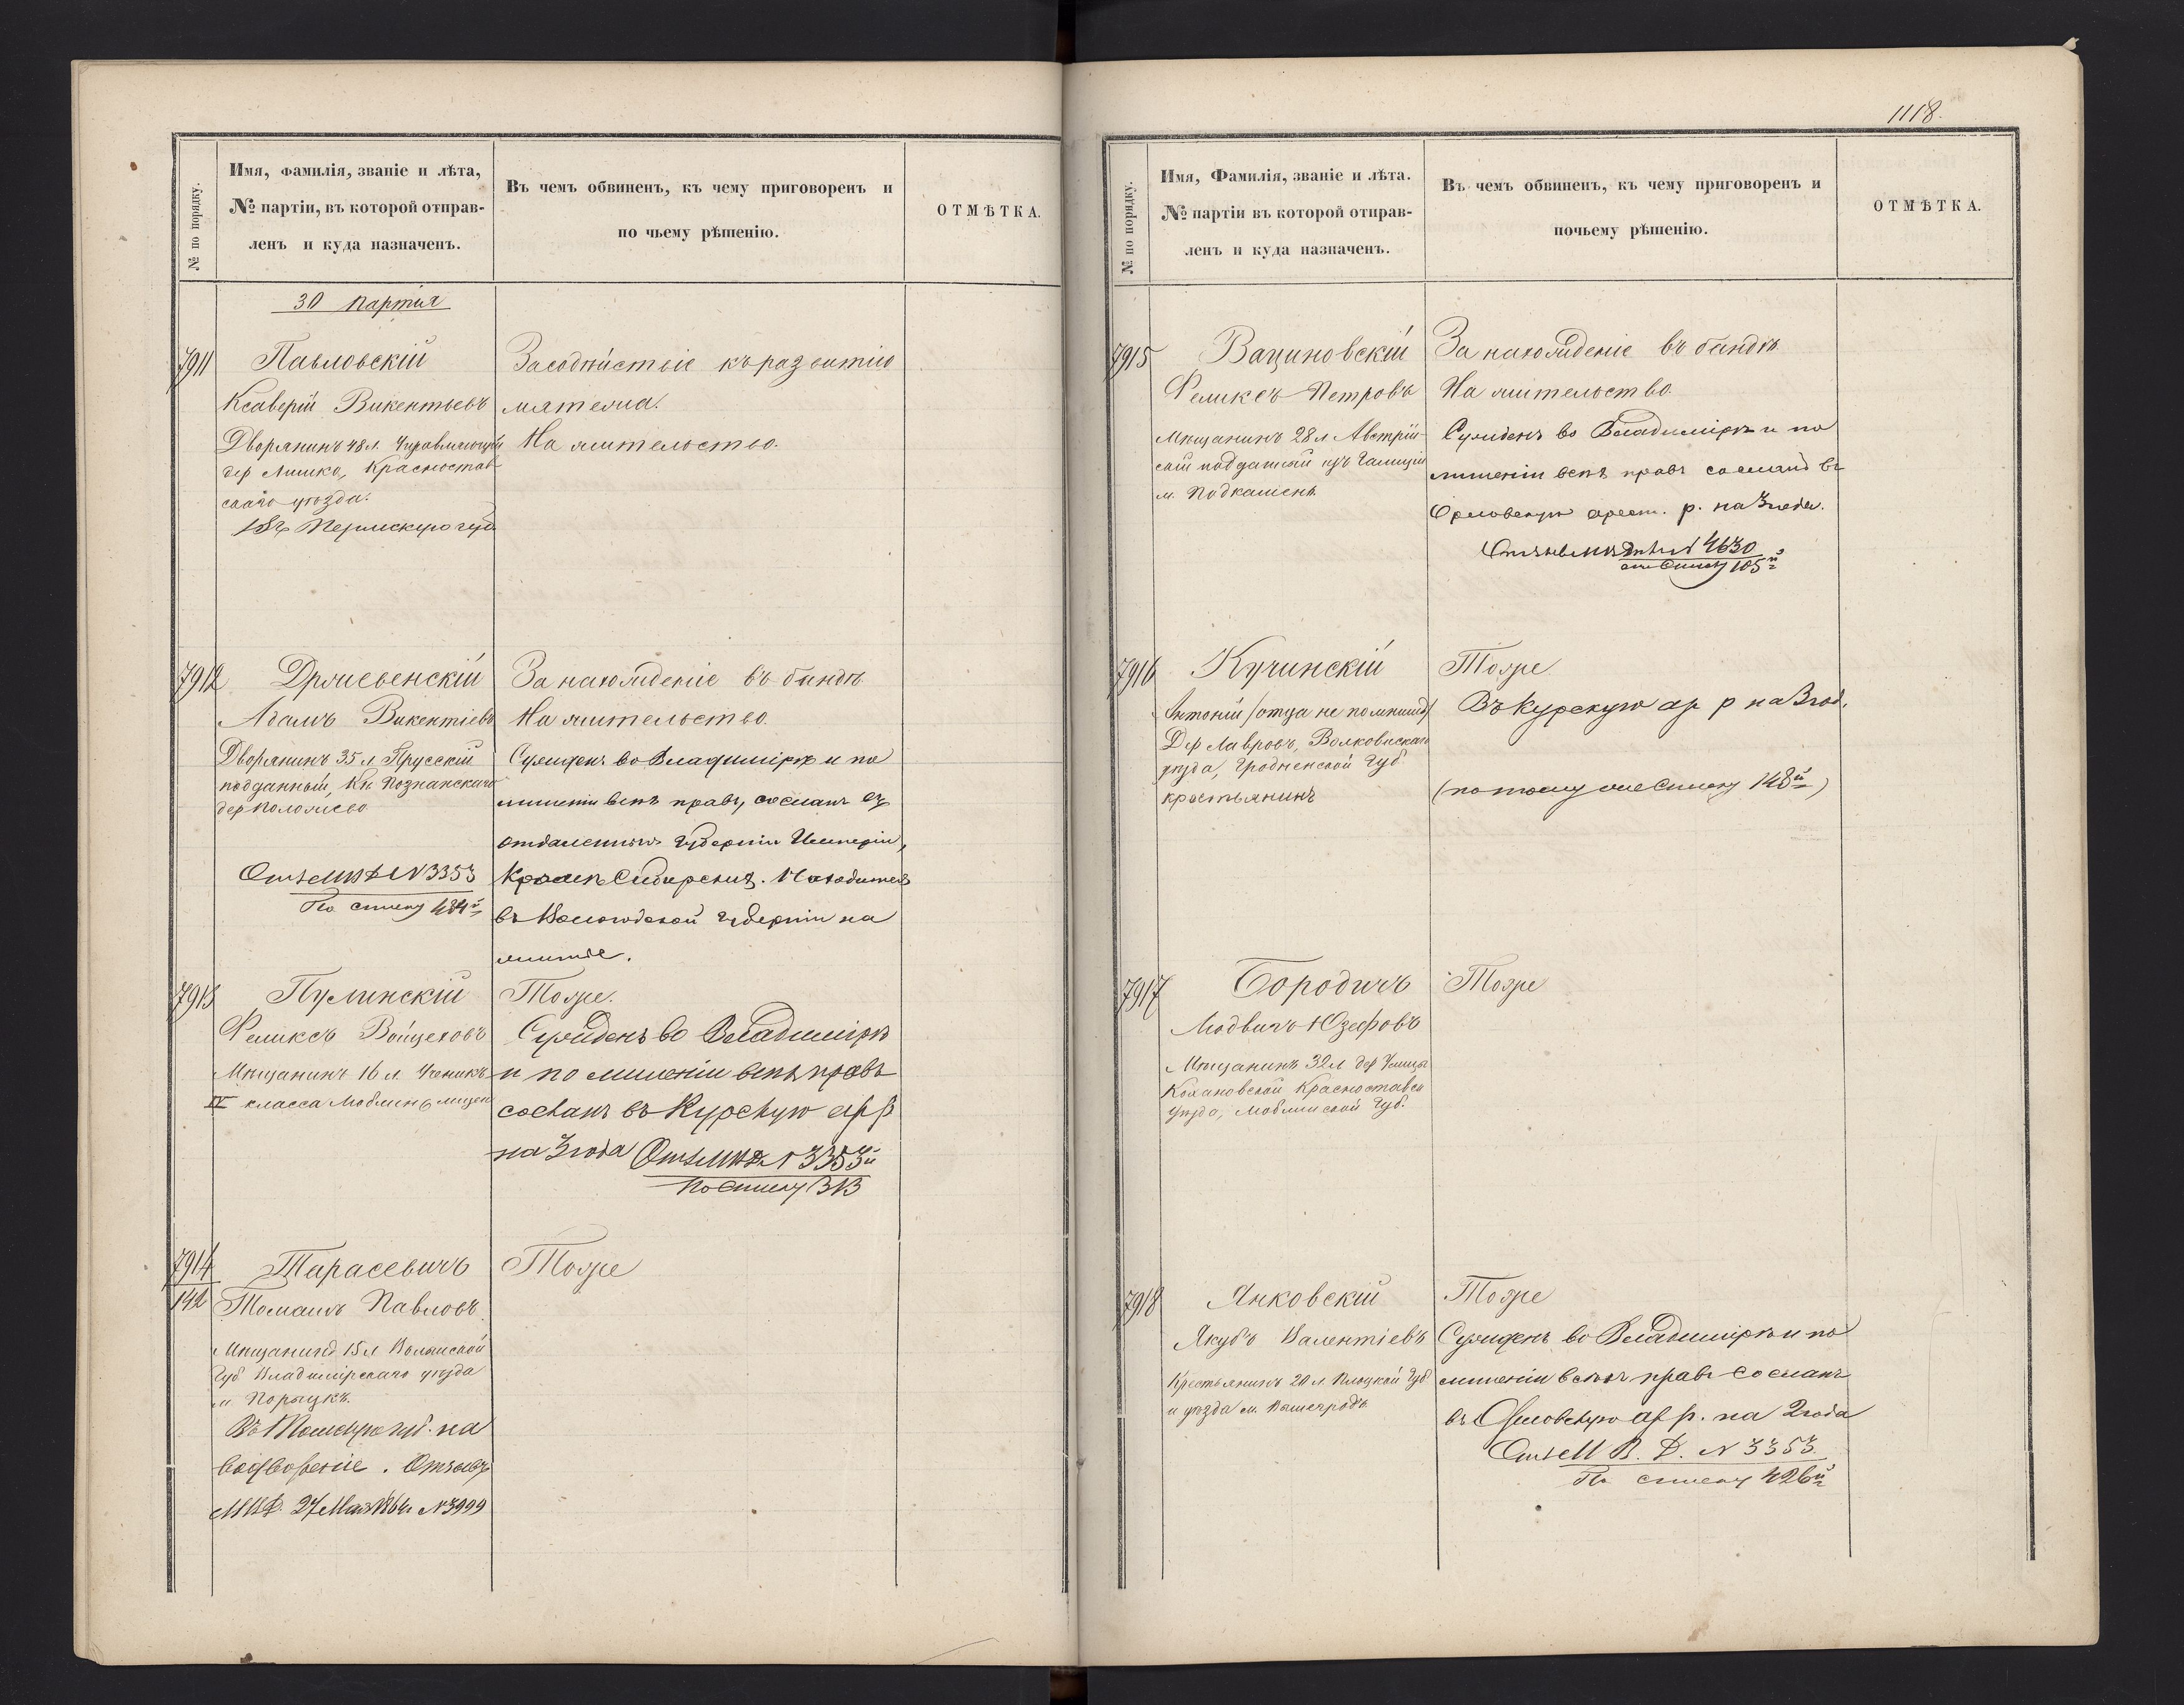 № по порядку.
Имя, фамилія, званіе и лѣта,
№ партіи, въ которой отправ-
ленъ и куда назначенъ.
Въ чемъ обвиненъ, къ чему приговоренъ и
по чьему рѣшенію.
ОТМѢТКА.
30 партія
7911
Павловскій
Ксаверій Викентьевъ
Дворянинъ 48 л. Управляющій
дер Красностав
скаго уѣзда.
Пермскую губ
За содѣйствіе къ развитію
мятежа.
На жительство.
7912
Држевенскій
Адамъ Викентіевъ
Дворянинъ 35 л Прусскій
подданный, Кн Познанскаго
дер
Отз МВД N 3353
По списку 484й
За нахожденіе въ бандѣ
На жительство.
Сужденъ во Владимірѣ и по
лишеніи всѣхъ правъ, сосланъ въ
отдаленныя Губерніи Имперіи,
Кромѣ Сибирскихъ. Находится
въ Вологодской губерніи на
житье.
7913
Пулинскій
Феликсъ Войцеховъ
Мѣщанинъ 16 л. Ученикъ
IV класса Люблин. лицея
Тоже.
Сужденъ во Владимірѣ
и по лишеніи всѣхъ правъ
сосланъ въ Курскую ар р
на 3 года Отз МВД N 3353й
По списку 313
7914
142
Тарасевичъ
Томашъ Павловъ
Мѣщанинъ 15 л Волынской
Губ Владимірскаго уѣзда
м Порыцкъ.
Въ Томскую губ. на
водвореніе. Отзывъ
МВД. 27 Мая 1864 N 3999
Тоже
1118.
№ по порядку.
Имя, Фамилія, званіе и лѣта.
№ партіи въ которой отправ-
ленъ и куда назначенъ.
Въ чемъ обвиненъ, къ чему приговоренъ и
почьему рѣшенію.
ОТМѢТКА.
7915
Вациновскій
Феликсъ Петровъ
Мѣщанинъ 28 л Австрій-
скій подданный изъ Галиціи
м. Подкамень
За нахожденіе въ бандѣ
На жительство.
Сужденъ во Владимірѣ и по
лишеніи всѣхъ правъ сосланъ въ
Орловскую арест. р. на 3 года.
N 4630
списку 105й
7916
Кучинскій
Антоній /отца не помнитъ/
Дер Лавровъ, Волковискаго
уѣзда, Гродненской Губ
крестьянинъ
Тоже
Въ Курскую ар р на 3 год.
(по тому же списку 148й)
7917
Бородичъ
Людвигъ Юзефовъ
Мѣщанинъ 32 л дер
Кохановской Красноставск
уѣзда, Люблинской Губ.
Тоже
7918
Янковскій
Якубъ Валентіевъ
Крестьянинъ 20 л. Плоцкой Губ
и уѣзда м. Вышегродъ
Тоже
Сужденъ во Владимірѣ и по
лишеніи всѣхъ правъ сосланъ
въ Орловскую ар р. на 2 года
Отз М. В. Д. N 3353
По списку 426й